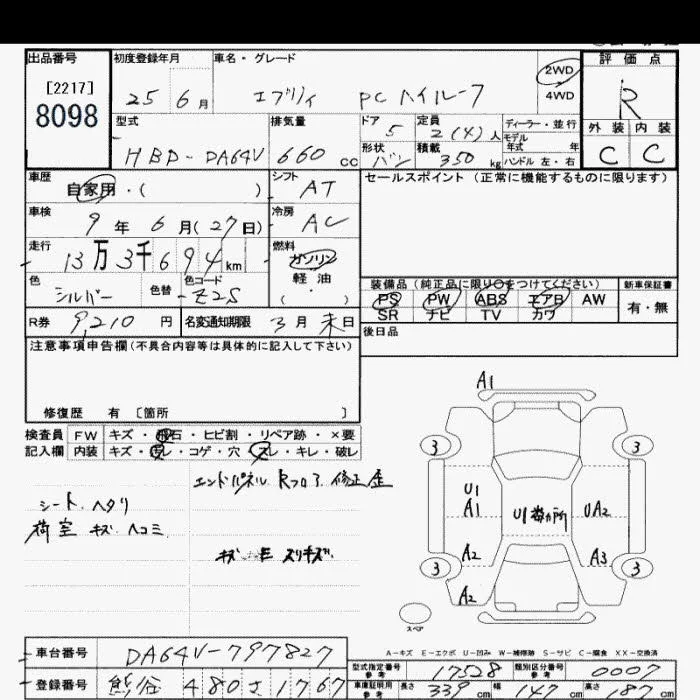 出品番号 初度登録年月 車名・グレード 評価点
[2217]
8098
25 6月 エブリィ PCハイルーフ 2WD 4WD R
型式 排気量 ドア 定員 ディーラー・並行 外装 内装
5 2(4)人 モデル年式 年
HBD-DA64V 660cc 形状 バン 積載 350kg ハンドル 左・右 C C
車歴 自家用・( ) シフト AT セールスポイント(正常に機能するものに限ります)
車検 9年6月(27日) 冷房 AC
走行 13万3千694km 燃料 ガソリン
軽油
( ・ )
色 シルバー 色替 色コード Z2S
装備品(純正品に限り○をつけてください) 新車保証書
PS PW ABS エアB AW 有・無
SR ナビ TV カワ
R券 9,210円 名変通知期限 3月末日 後日品
注意事項申告欄(不具合内容等は具体的に記入して下さい)
修復歴 有 [箇所 ]
検査員 FW キズ・飛石・ヒビ割・リペア跡・×要
記入欄 内装 キズ・汚レ・コゲ・穴・スレ・キレ・破レ
エンドパネル Rフロア 修正歪
シート ヘタリ
荷室 キズ ヘコミ
A1
3 3
U1
A1 UA2
A2 A3
3 3
A2
スペア
A-キズ E-エクボ U-凹み W-補修跡 S-サビ C-腐食 XX-交換済
車台番号 DA64V-797827 型式指定番号 参考 17528 類別区分番号 参考 0007
登録番号 熊谷 480 さ 1767 車庫証明用 参考 長さ 339cm 幅 147cm 高さ